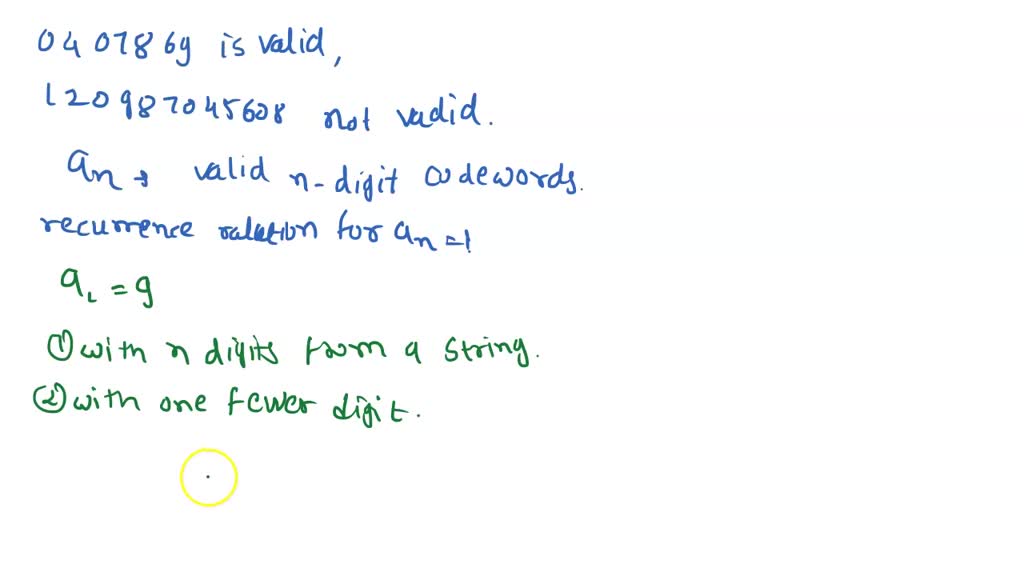 0407869 is valid,
120987045608 not valid.
an → valid n-digit codewords.
recurrence relation for an =!
a1 = 9
① with n digits from a string.
② with one fewer digit.